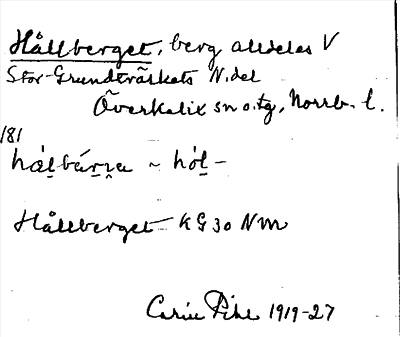 Hållberget, berg alldeles V
Stor-Grundträskets N. del
Överkalix sn o. tg, Norrb. l.
181
hålbárja ~ hól-
Hållberget KG 30 NM
Carin Pihl 1919-27